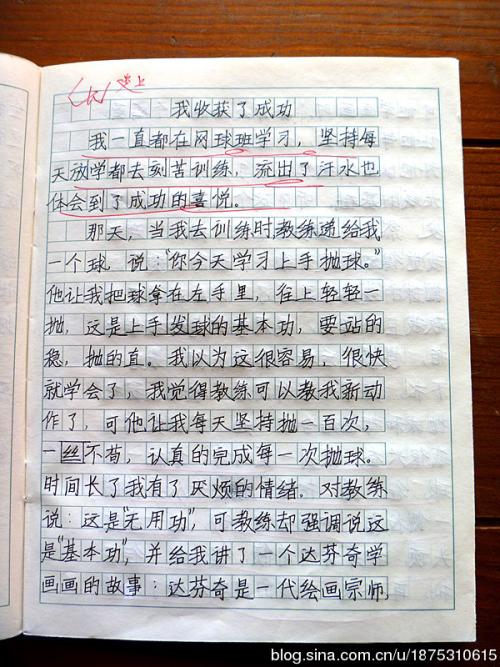 我收获了成功
我一直都在网球班学习，坚持每
天放学都去刻苦训练，流出了汗水也
体会到了成功的喜悦。
那天，当我去训练时教练递给我
一个球，说：“你今天学习上手抛球。”
他让我把球拿在左手里，往上轻轻一
抛，这是上手发球的基本功，要站的
稳，抛的直。我以为这很容易，很快
就学会了，我觉得教练可以教我新动
作了，可他让我每天坚持抛一百次，
一丝不苟，认真的完成每一次抛球。
时间长了我有了厌烦的情绪。对教练
说：这是“无用功”，可教练却强调说这
是“基本功”，并给我讲了一个达芬奇学
画画的故事：达芬奇是一代绘画宗师，
blog.sina.com.cn/u/1875310615